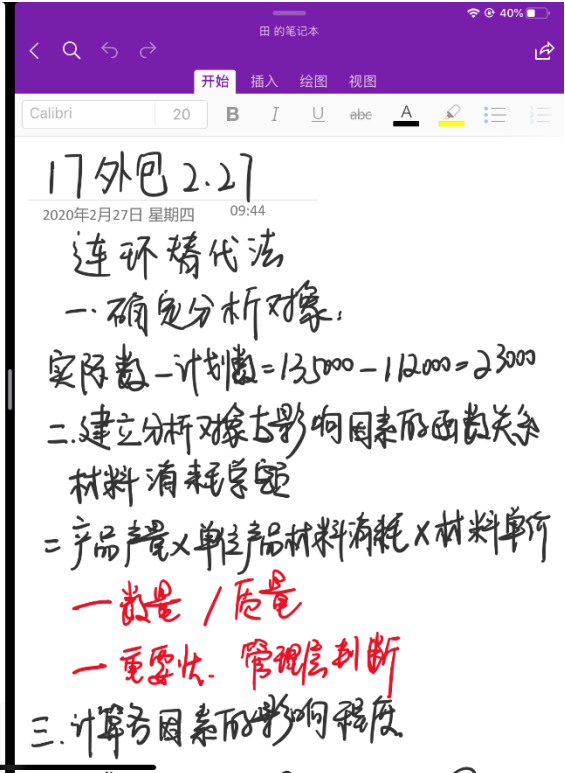 40%
田 的笔记本
开始 插入 绘图 视图
Calibri 20 B I U abc A
17外包2.27
2020年2月27日 星期四 09:44
连环替代法
一.确定分析对象:
实际数-计划数=135000-112000=23000
二.建立分析对象与影响因素的函数关系
材料消耗总额
=产品产量×单位产品材料消耗×材料单价
一数量/质量
一重要性. 管理层判断
三.计算各因素的影响程度